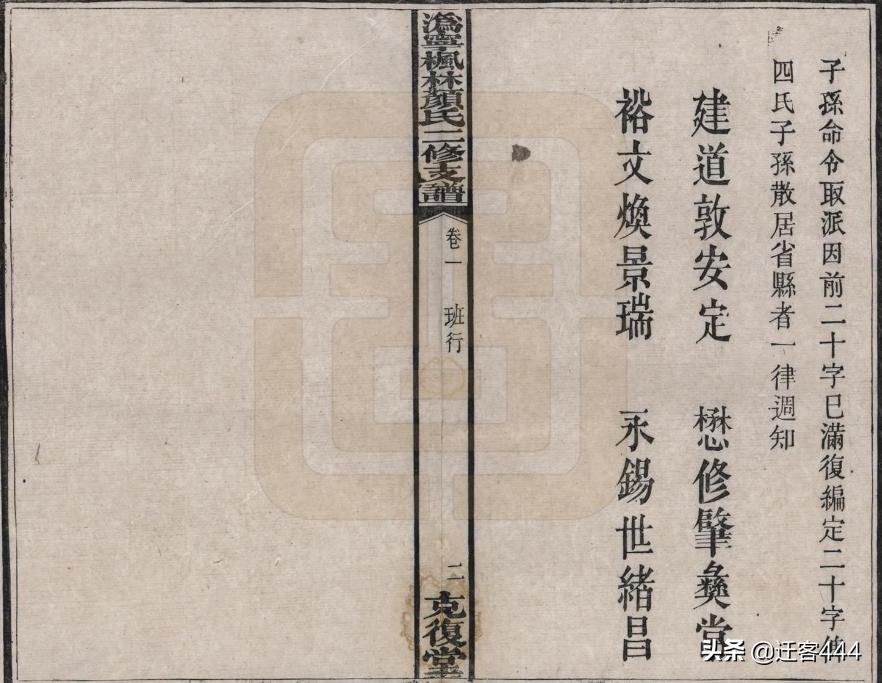 子孫命令取派因前二十字已滿復編定二十字俾
四氏子孫散居省縣者一律週知
建道敦安定　懋修肇彝常
裕文煥景瑞　永錫世緒昌
溈寧楓林顏氏二修支譜
卷一　班行
二
克復堂
头条 @迁客444